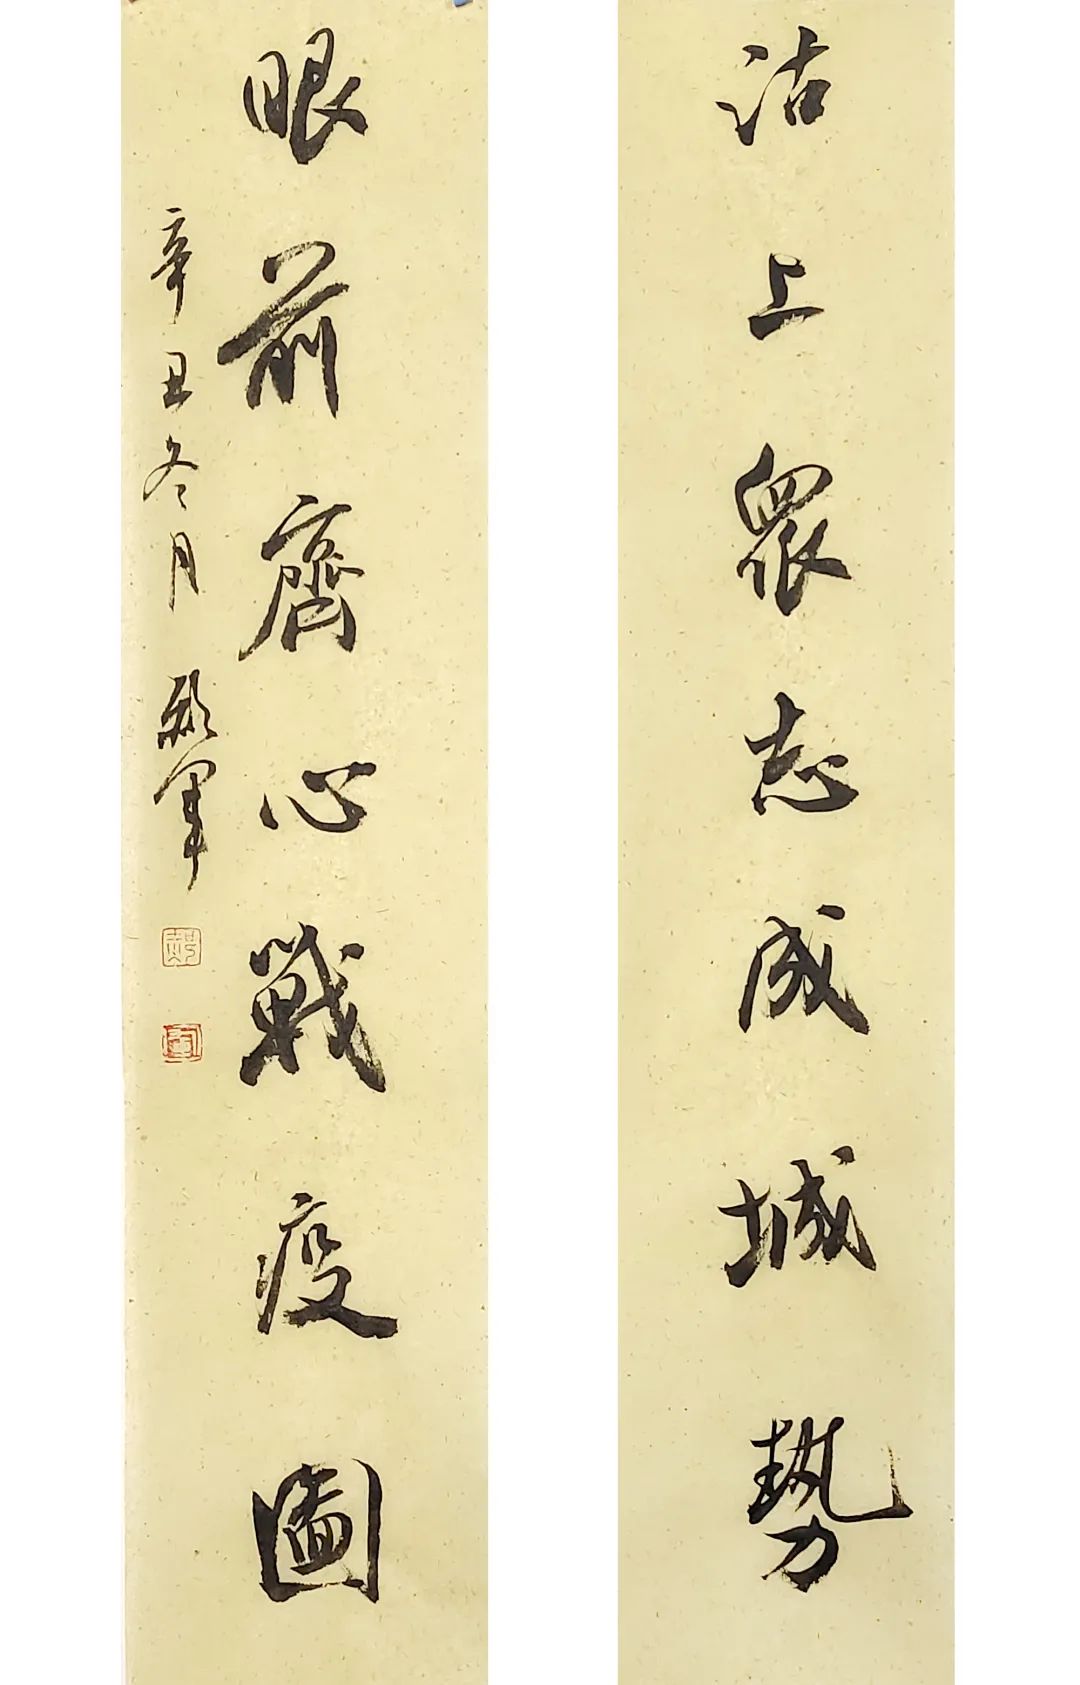 沽上眾志成城勢
眼前齊心戰疫圖
辛丑冬月 顯軍